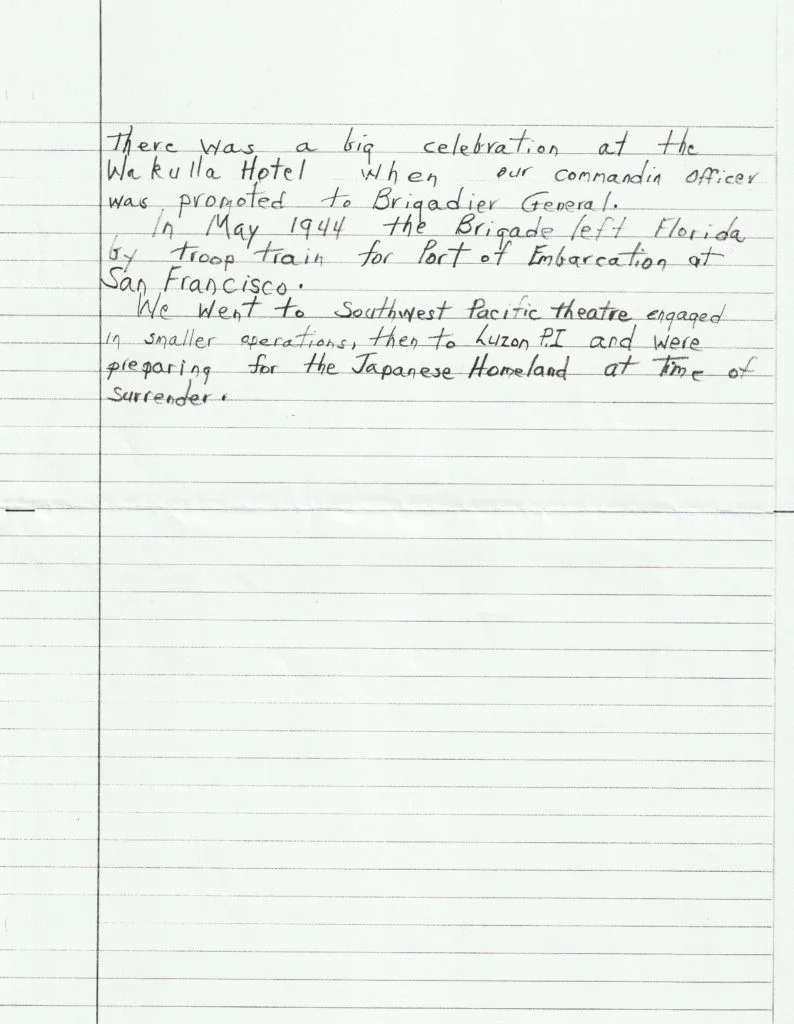 There was a big celebration at the
Wakulla Hotel when our commandin officer
was promoted to Brigadier General.
In May 1944 the Brigade left Florida
by troop train for Port of Embarcation at
San Francisco.
We went to Southwest Pacific theatre engaged
in smaller operations, then to Luzon P.I and were
preparing for the Japanese Homeland at time of
surrender.